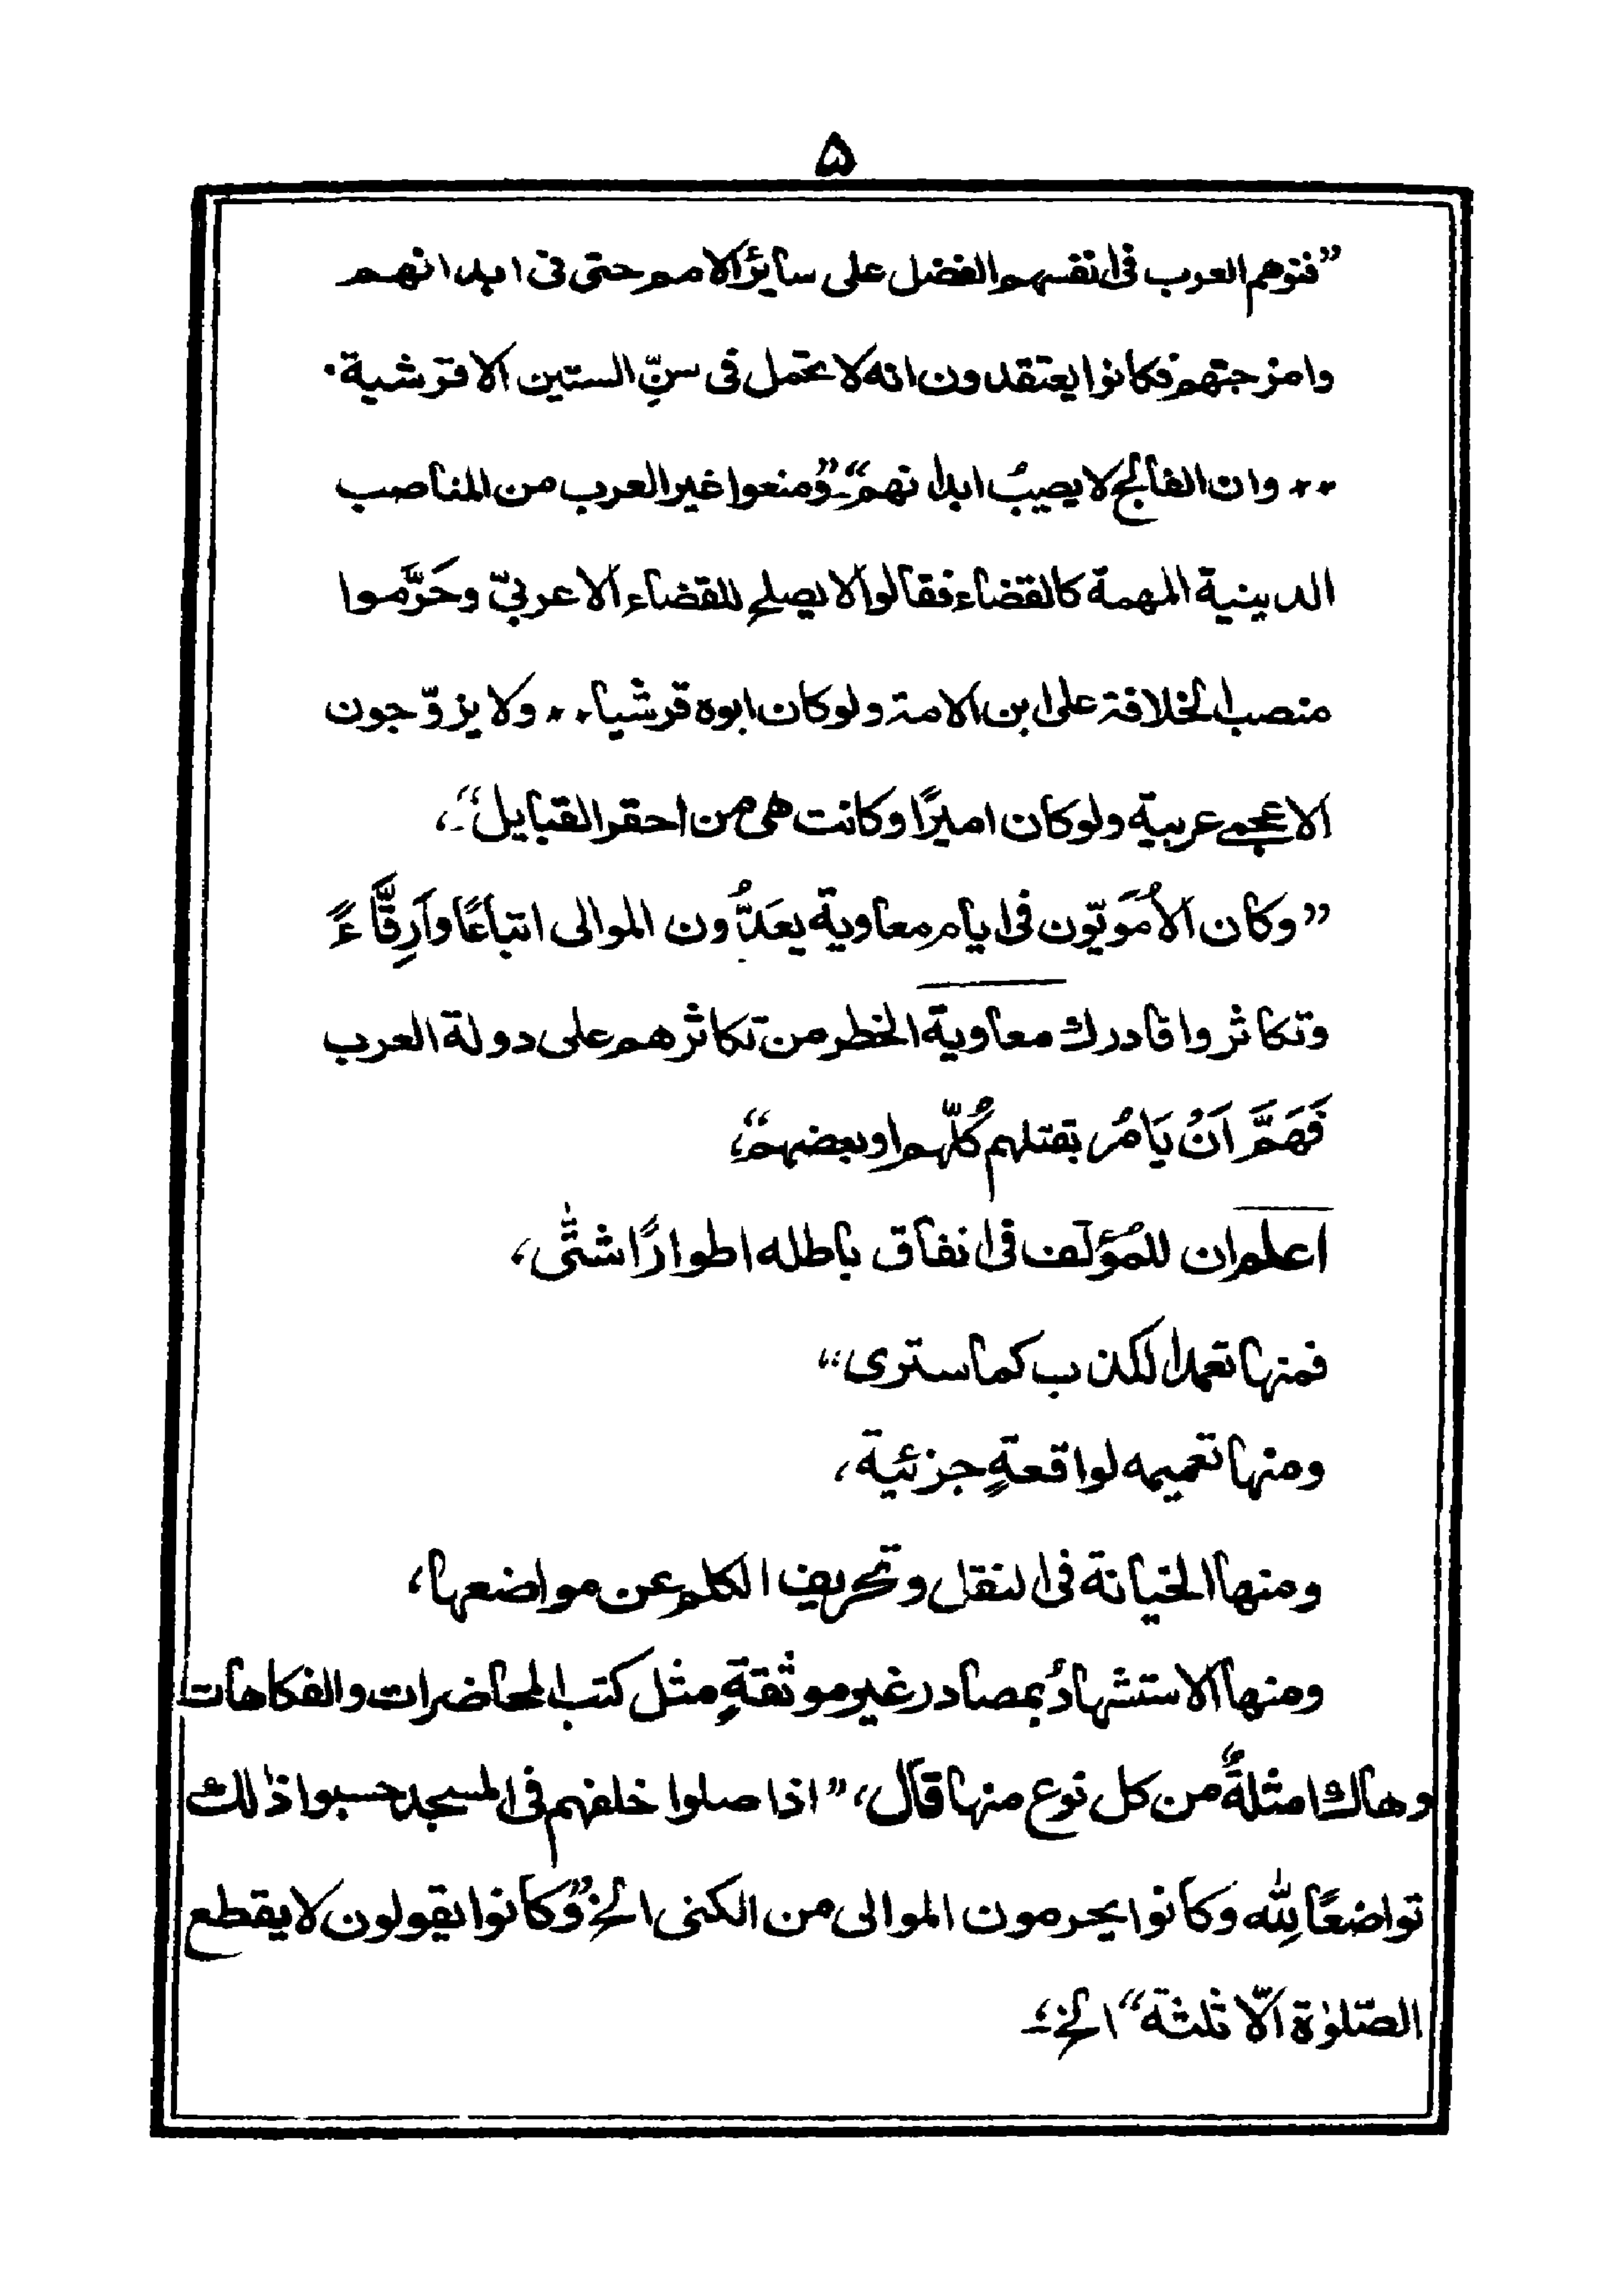 ۵
”فتوهم العرب فى انفسهم الفضل على سائر الامم حتى فى ابدانهم
وامزجتهم فكانوا يعتقدون انه لا تحمل فى سنِّ الستين الا قرشية ۰
٭٭ وان الفالج لا يصيبُ ابدانهم“ـ ”ومنعوا غير العرب من المناصب
الدينية المهمة كالقضاء فقالوا لا يصلح للقضاء الا عربىّ وحَرَّموا
منصب الخلافة على ابن الامة ولو كان ابوه قرشيا ٭٭ ولا يزوّجون
الاعجمى عربية ولو كان اميرًا وكانت هى من احقر القبايل“ـ،
”وكان الأُمَوِيّون فى ايام معاوية يعَدُّون الموالى اتباعًا وأَرِقَّاءً
وتكاثروا فادرك معاوية الخطر من تكاثرهم على دولة العرب
فَهَمَّ اَنْ يَامُر بقتلهم كُلّهم او بعضهم“،
اعلم ان للمُؤلّف فى انفاق باطله اطوارًا شتّٰى،
فمنها تعمد الكذب كما سترى،،
ومنها تعميمه لواقعةٍ جزئية،
ومنها الخيانة فى النقل وتحريف الكلم عن مواضعها،
ومنها الاستشهادُ بمصادر غير موثقةٍ مثل كتب المحاضرات والفكاهات
وهاك امثلةً من كل نوع منها قال، ”اذا صلوا خلفهم فى المسجد حسبوا ذٰلك
تواضعًا لِلّٰه وكانوا يحرمون الموالى من الكنى الخ“ ”وكانوا يقولون لا يقطع
الصّلوٰة الّا ثلثة“ الخ،ـ